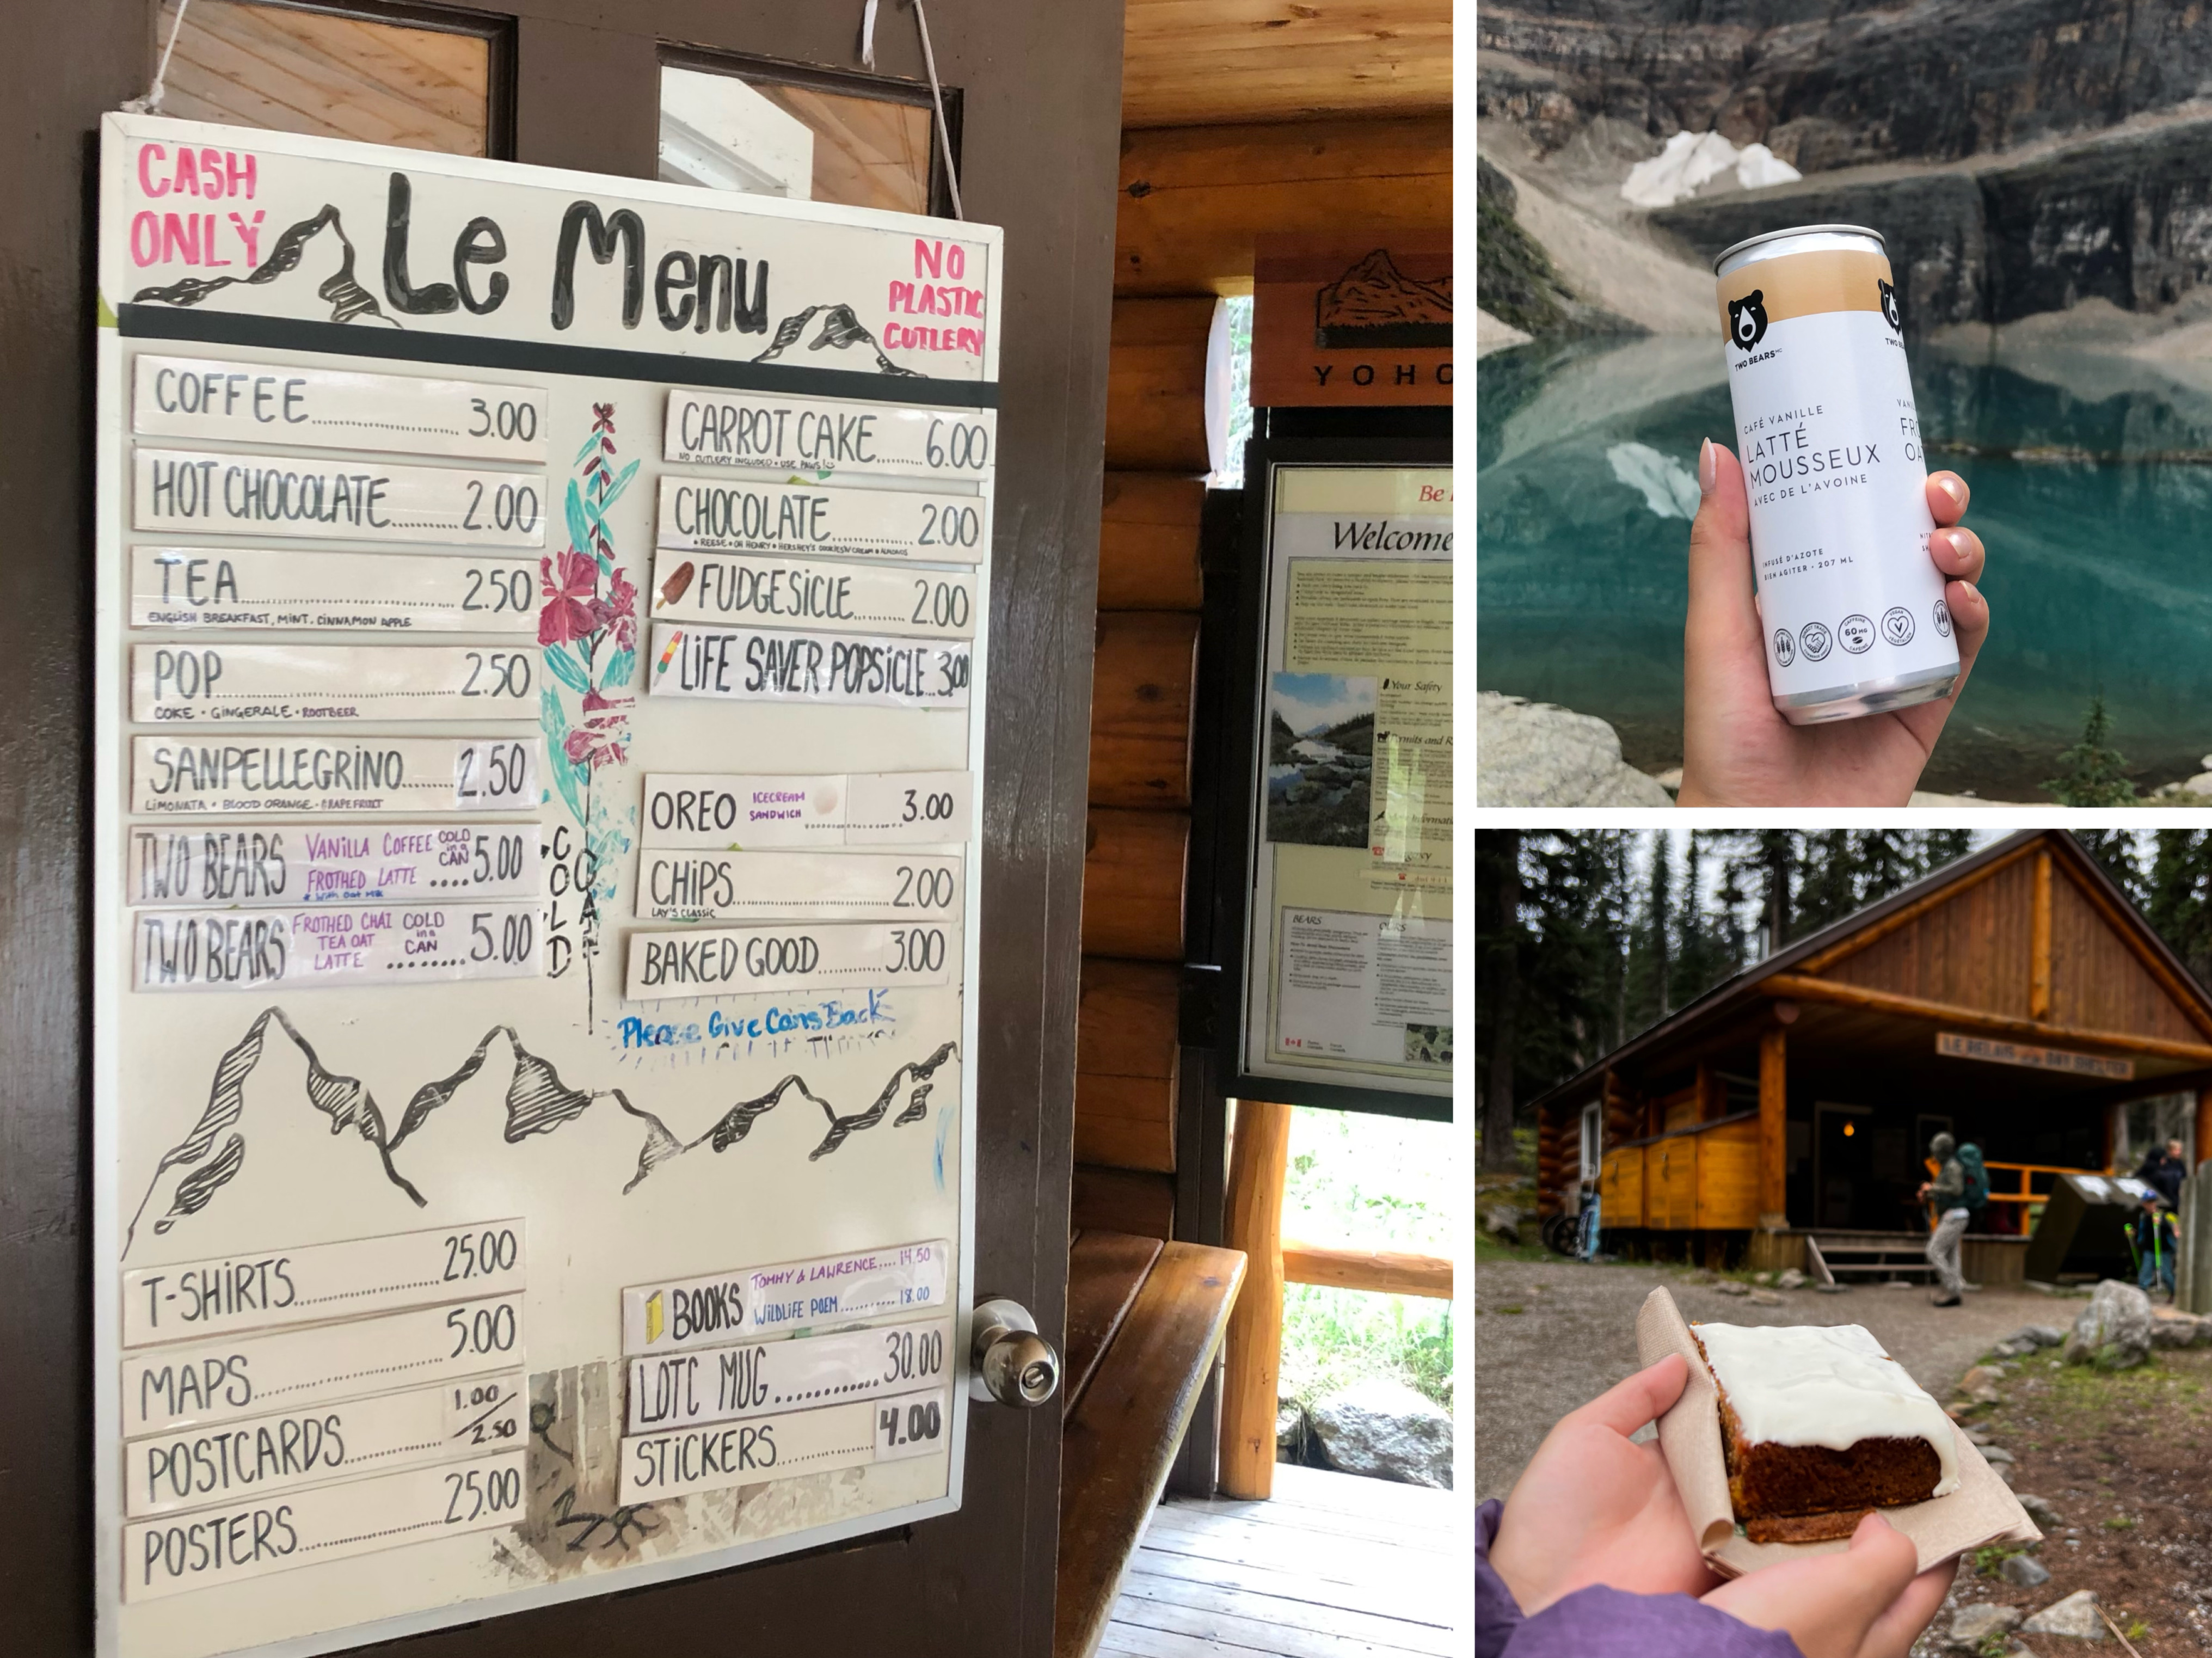 CASH
ONLY
Le Menu
NO
PLASTIC
CUTLERY
COFFEE............ 3.00
HOT CHOCOLATE.......... 2.00
TEA.................. 2.50
ENGLISH BREAKFAST, MINT, CINNAMON APPLE
POP.................. 2.50
COKE • GINGERALE • ROOTBEER
SANPELLEGRINO....... 2.50
LIMONATA • BLOOD ORANGE • GRAPEFRUIT
TWO BEARS VANILLA COFFEE FROTHED LATTE COLD in a CAN .... 5.00
* With Oat Milk
TWO BEARS FROTHED CHAI TEA OAT LATTE COLD in a CAN ........ 5.00
COLD
CARROT CAKE....... 6.00
NO CUTLERY INCLUDED • USE PAWS!
CHOCOLATE........... 2.00
• REESE • OH HENRY • HERSHEY'S COOKIES'N'CREAM • ALMONDS
FUDGESICLE......... 2.00
LIFE SAVER POPSICLE.. 3.00
OREO ICECREAM SANDWICH ........... 3.00
CHIPS................. 2.00
LAY'S CLASSIC
BAKED GOOD.......... 3.00
Please Give Cans Back
T-SHIRTS................ 25.00
MAPS...................... 5.00
POSTCARDS........... 1.00/2.50
POSTERS................ 25.00
BOOKS TOMMY & LAWRENCE.... 14.50
WILDLIFE POEM........... 18.00
LOTC MUG............ 30.00
STICKERS.............. 4.00
YOHO
Be
Welcome
Your Safety
BEARS
OURS
TWO BEARS
CAFÉ VANILLE
LATTÉ
MOUSSEUX
AVEC DE L'AVOINE
INFUSÉ D'AZOTE
BIEN AGITER • 207 ML
CAFFEINE
60 mg
CAFÉINE
LE RELAIS DAY SHELTER